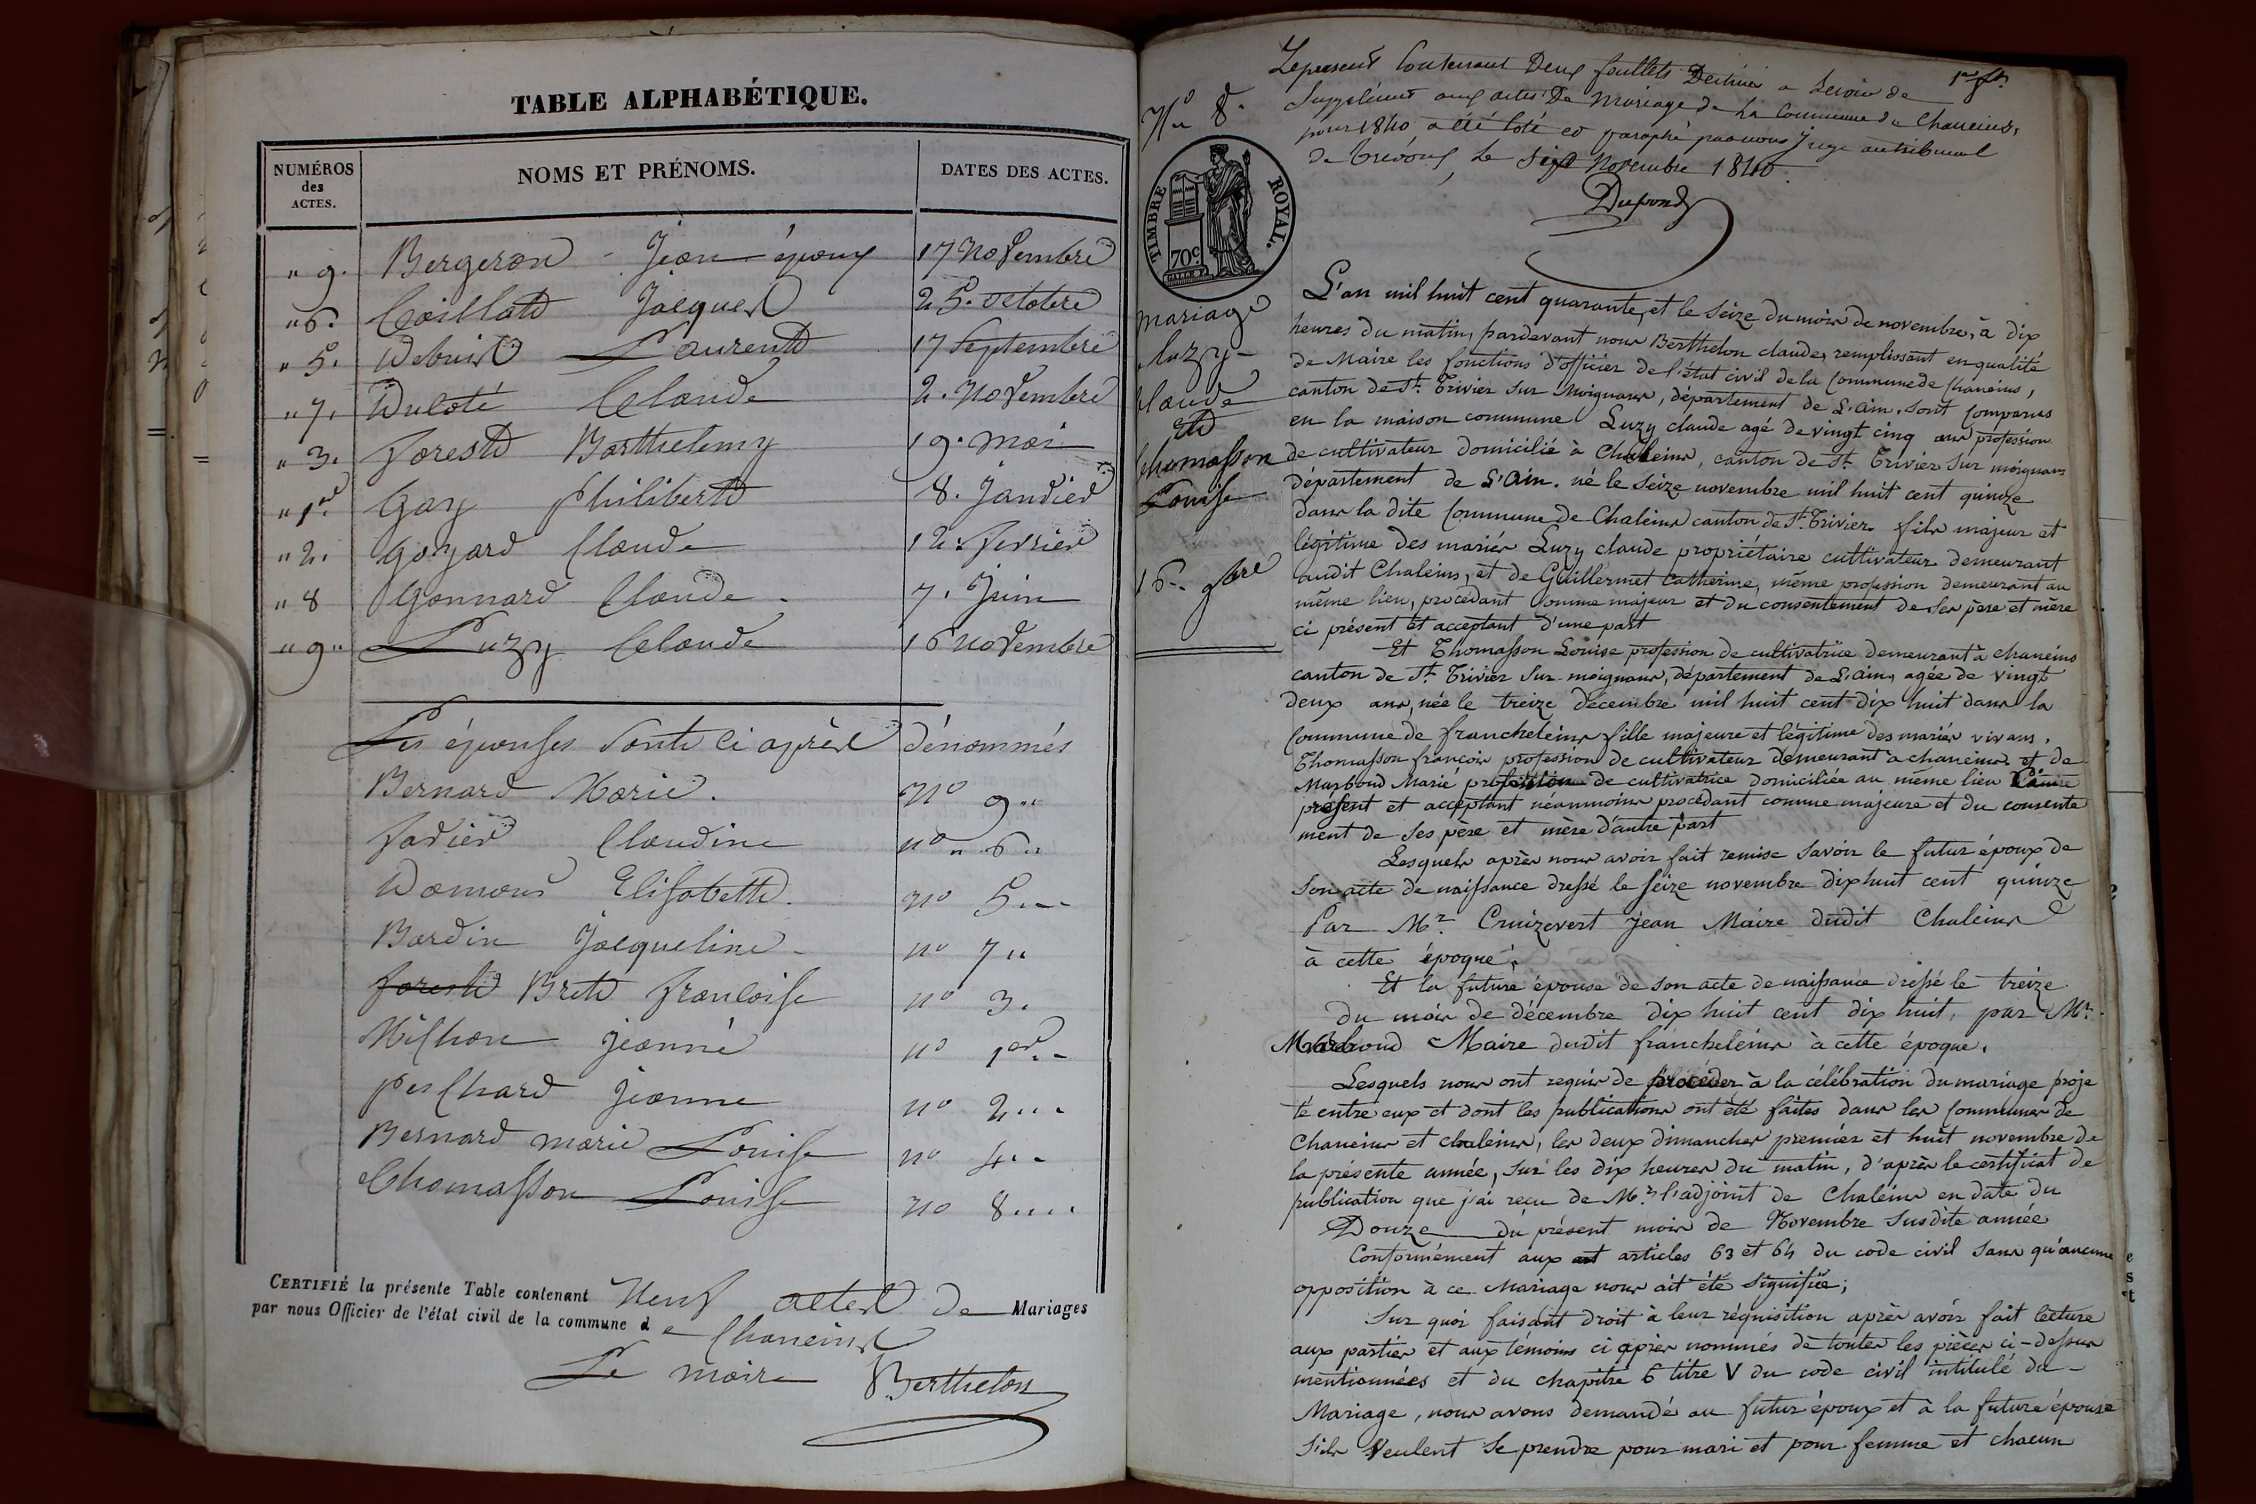 TABLE ALPHABÉTIQUE.
NUMÉROS des ACTES.
NOMS ET PRÉNOMS.
DATES DES ACTES.
" 9. Bergeron Jean époux 17 Novembre
" 6. Caillat Jacques 25. Octobre
" 5. Laurent 17 Septembre
" 7. Duloté Claude 2. Novembre
" 3. forest Barthelemy 19. mai
" 1er Gay Philibert 8. Janvier
" 2. Goyard Claude 12. fevrier
" 8 Gonnard Claude 7. Juin
" 9 " Luzy Claude 16 Novembre
Les épouses sont ci après dénommés
Bernard Marie. No 9 "
Claudine no " 6 "
Elisabeth. no 5
Bardin Jacqueline no 7 "
forest Bret francoise no 3.
Michon Jeanne no 1er
Jeanne no 2
Bernard marie Louise no 4
Thomasson Louise no 8
CERTIFIÉ la présente Table contenant Neuf actes de Mariages
par nous Officier de l'état civil de la commune de Chaneins
Le maire Berthelon
1er ft
Le present Contenant Deux feuillets Destinés a servir de
Supplément aux actes De Mariage de la Commune de Chaneins,
pour 1840 a été coté et paraphé par nous Juge au tribunal
de Trévoux, le sept Novembre 1840
Dupond
No 8.
TIMBRE ROYAL.
70c
mariage
Luzy
Claude
Et
Thomasson
Louise
16. 9bre
L'an mil huit cent quarante, et le seize du mois de novembre, à dix
heures du matin, pardevant nous Berthelon claude, remplissant en qualité
de Maire les fonctions d'officier de l'état civil de la Commune de Chaneins,
canton de St. Trivier sur Moignans, département de L'ain. sont comparus
en la maison commune Luzy claude agé de vingt cinq ans profession
de cultivateur domicilié à Chaleins, canton de St. Trivier sur moignans
département de L'Ain. né le seize novembre mil huit cent quinze
dans la dite Commune de Chaleins canton de St. Trivier fils majeur et
légitime des mariés Luzy claude propriétaire cultivateur demeurant
audit Chaleins, et de Guillermet Catherine, même profession demeurant au
même lieu, procédant comme majeur et du consentement de ses père et mère
ci présent et acceptant d'une part
Et Thomasson Louise profession de cultivatrice demeurant à chaneins
canton de St. Trivier sur moignans, département de L'ain, agée de vingt
deux ans, née le treize décembre mil huit cent dix huit dans la
commune de francheleins fille majeure et légitime des mariés vivans,
Thomasson françois profession de cultivateur demeurant à chaneins et de
Marie profession de cultivatrice domiciliée au même lieu
présent et acceptant néanmoins procédant comme majeure et du consente
ment de ses père et mère d'autre part
Lesquels après nous avoir fait remise savoir le futur époux de
son acte de naissance dressé le seize novembre dix huit cent quinze
Par Mr. Cruizevert jean Maire dudit Chaleins
à cette époque.
Et la future épouse de son acte de naissance dressé le treize
du mois de décembre dix huit cent dix huit, par Mr.
Maire dudit francheleins à cette époque.
Lesquels nous ont requis de procéder à la célébration du mariage proje
té entre eux et dont les publications ont été faites dans les communes de
Chaneins et chaleins, les deux dimanches premier et huit novembre de
la présente année, sur les dix heures du matin, d'après le certificat de
publication que j'ai reçu de Mr. l'adjoint de Chaleins en date du
Douze du présent mois de Novembre susdite année
Conformément aux articles 63 et 64 du code civil sans qu'aucune
opposition à ce Mariage nous ait été signifiée;
Sur quoi faisant droit à leur réquisition après avoir fait lecture
aux parties et aux témoins ci après nommés de toutes les pièces ci-dessus
mentionnées et du chapitre 6 titre V du code civil intitulé du
Mariage, nous avons demandé au futur époux et à la future épouse
s'ils veulent se prendre pour mari et pour femme et chacun